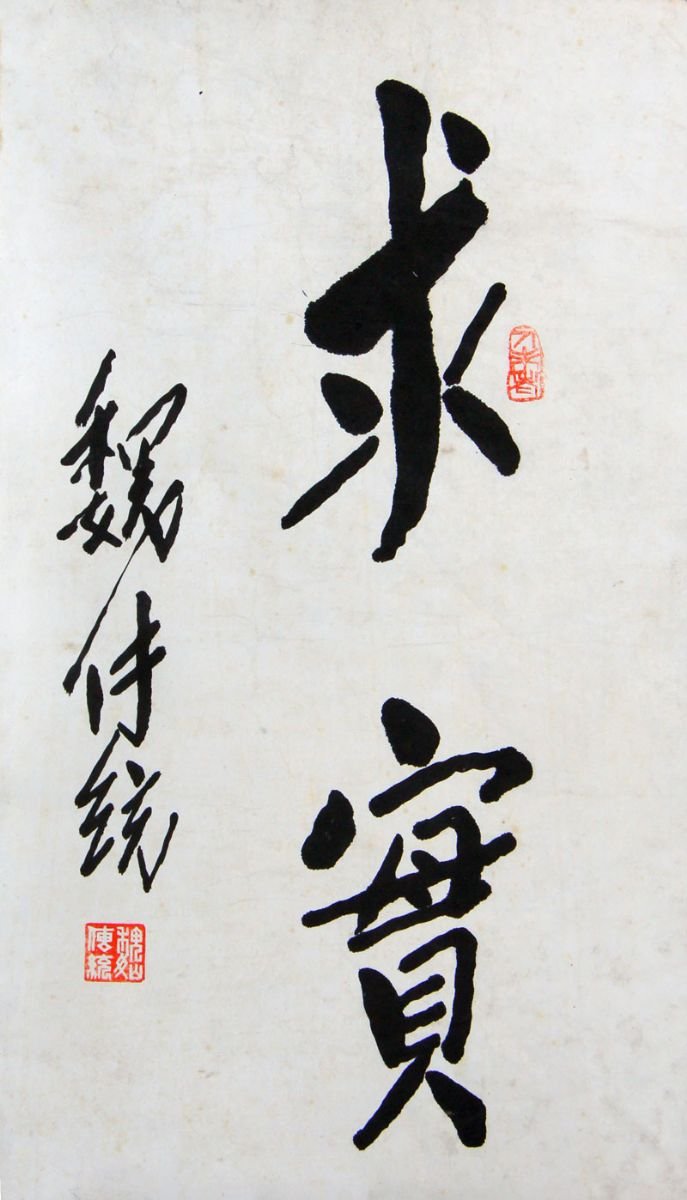 求實
魏传统
魏傳統